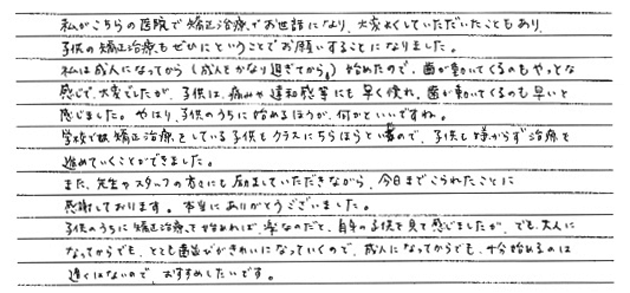 私がこちらの医院で矯正治療でお世話になり、大変よくしていただいたこともあり、
子供の矯正治療もぜひにということでお願いすることになりました。
私は成人になってから(成人をかなり過ぎてから。)始めたので、歯が動いてくるのもやっとな
感じで、大変でしたが、子供は、痛みや違和感等にも早く慣れ、歯が動いてくるのも早いと
感じました。やはり、子供のうちに始めるほうが、何かといいですね。
学校でも矯正治療をしている子供もクラスにちらほらと居るので、子供も嫌がらず治療を
進めていくことができました。
また、先生やスタッフの方々にも励ましていただきながら、今日までこられたことに
感謝しております。本当にありがとうございました。
子供のうちに矯正治療を始めれば、楽なのだと、自身の子供を見て感じましたが、でも、大人に
なってからでも、とても歯並びがきれいになっていくので、成人になってからでも、十分始めるのは
遅くはないので、おすすめしたいです。